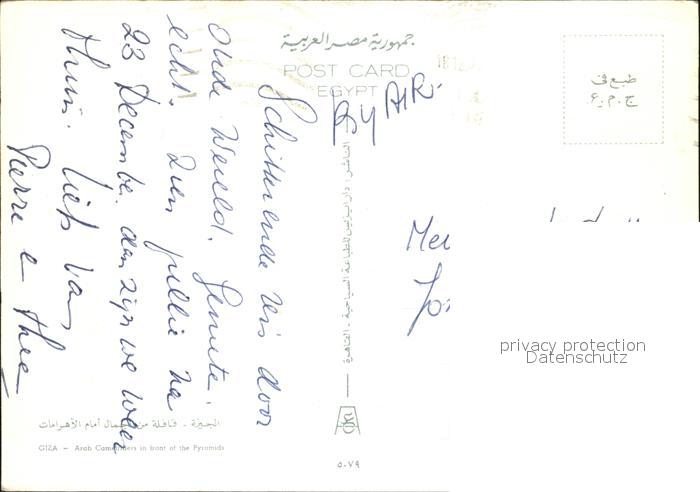 جمهورية مصر العربية
POST CARD
EGYPT
BY AIR
طبع فى
ج.م.ع.
Schitterende reis door
Oude Wereld. Genieten
echt. Zien jullie na
23 December. dan zijn we weer
thuis. Liefs van
Pierre en Thea
الناشر : دار لبرتين للطباعة السياحية - القاهرة
privacy protection
Datenschutz
الجيزة - قافلة من الجمال أمام الأهرامات
GIZA – Arab Cameliers in front of the Pyramids
٥٠٧٩